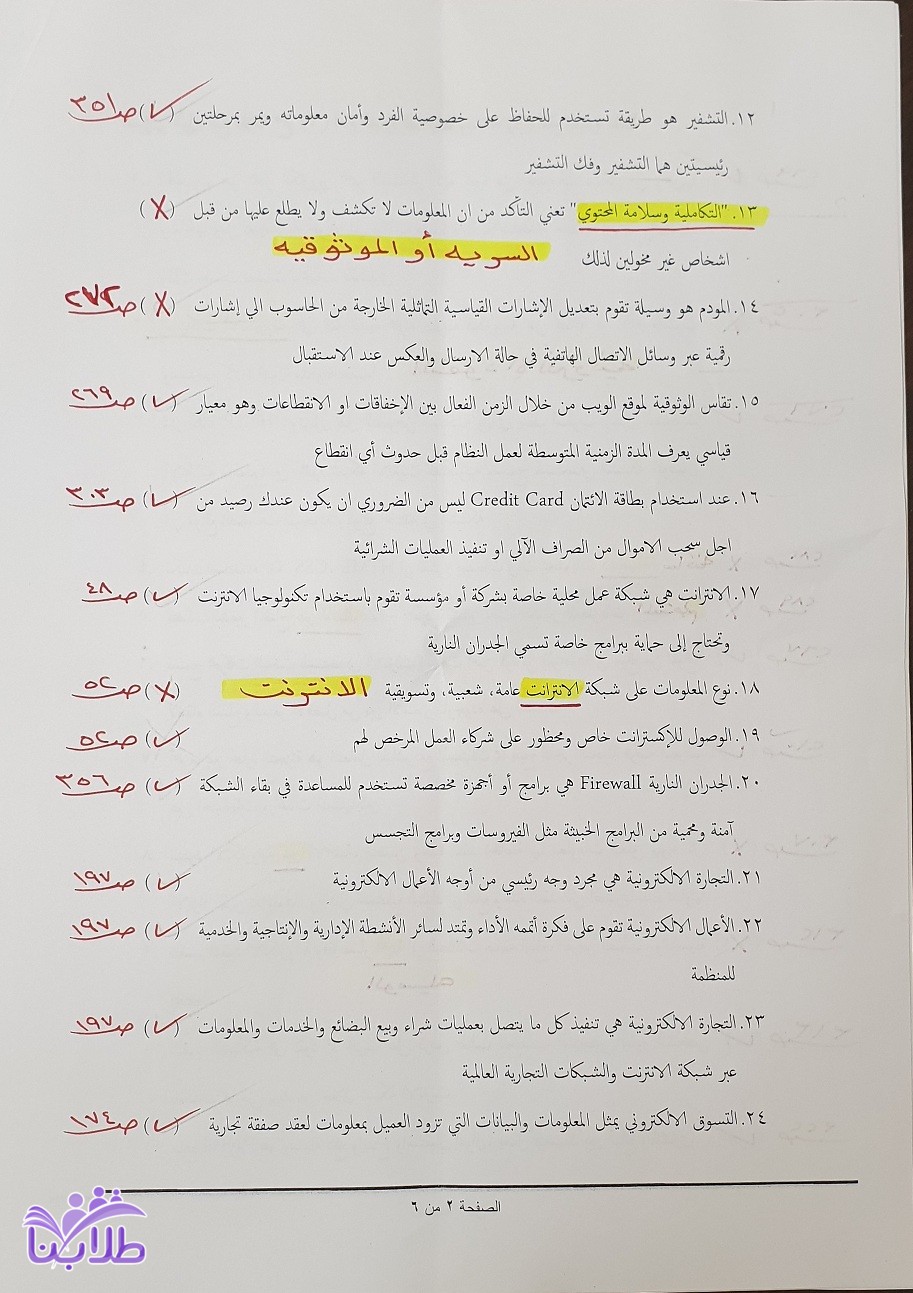 ١٢. التشفير هو طريقة تستخدم للحفاظ على خصوصية الفرد وأمان معلوماته ويمر بمرحلتين (✓) صـ٣٥١
رئيسيتين هما التشفير وفك التشفير
١٣. "التكاملية وسلامة المحتوي" تعني التأكد من ان المعلومات لا تكشف ولا يطلع عليها من قبل (X)
اشخاص غير مخولين لذلك السريه أو الموثوقيه
١٤. المودم هو وسيلة تقوم بتعديل الإشارات القياسية التماثلية الخارجة من الحاسوب الي إشارات (X) صـ٢٧٢
رقمية عبر وسائل الاتصال الهاتفية في حالة الارسال والعكس عند الاستقبال
١٥. تقاس الوثوقية لموقع الويب من خلال الزمن الفعال بين الإخفاقات او الانقطاعات وهو معيار (✓) صـ٢٦٩
قياسي يعرف المدة الزمنية المتوسطة لعمل النظام قبل حدوث أي انقطاع
١٦. عند استخدام بطاقة الائتمان Credit Card ليس من الضروري ان يكون عندك رصيد من (✓) صـ٣٠٣
اجل سحب الاموال من الصراف الآلي او تنفيذ العمليات الشرائية
١٧. الانترانت هي شبكة عمل محلية خاصة بشركة أو مؤسسة تقوم باستخدام تكنولوجيا الانترنت (✓) صـ٤٨
وتحتاج إلى حماية ببرامج خاصة تسمي الجدران النارية
١٨. نوع المعلومات على شبكة الانترانت عامة، شعبية، وتسويقية الانترنت (X) صـ٥٢
١٩. الوصول للإكسترانت خاص ومحظور على شركاء العمل المرخص لهم (✓) صـ٥٢
٢٠. الجدران النارية Firewall هي برامج أو أجهزة مخصصة تستخدم للمساعدة في بقاء الشبكة (✓) صـ٣٥٦
آمنة ومحمية من البرامج الخبيثة مثل الفيروسات وبرامج التجسس
٢١. التجارة الالكترونية هي مجرد وجه رئيسي من أوجه الأعمال الالكترونية (✓) صـ١٩٧
٢٢. الأعمال الالكترونية تقوم على فكرة أتممه الأداء وتمتد لسائر الأنشطة الإدارية والإنتاجية والخدمية (✓) صـ١٩٧
للمنظمة
٢٣. التجارة الالكترونية هي تنفيذ كل ما يتصل بعمليات شراء وبيع البضائع والخدمات والمعلومات (✓) صـ١٩٧
عبر شبكة الانترنت والشبكات التجارية العالمية
٢٤. التسوق الالكتروني يمثل المعلومات والبيانات التي تزود العميل بمعلومات لعقد صفقة تجارية (✓) صـ١٧٤
الصفحة ٢ من ٦
طلابنا